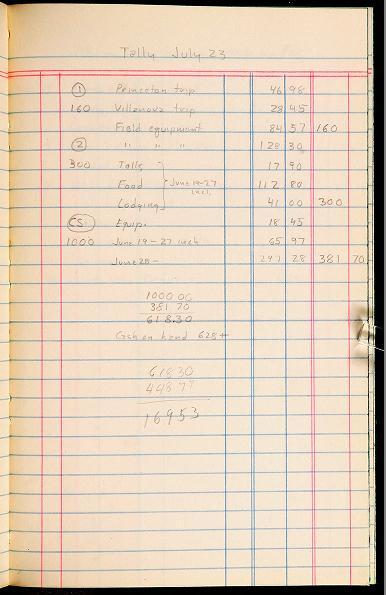 Tally July 23
① Princeton trip 46 98
160 Villanova trip 28 45
Field equipment 84 57 160
② " " " 128 30
300 Tolls 17 90
Food 112 80
June 19-27 incl.
Lodging 41 00 300
CS Equip. 18 45
1000 June 19-27 inclu 65 97
June 28- 297 28 381 70
1000 00
381 70
618.30
Cash on hand 628+
618 30
448 77
169 53